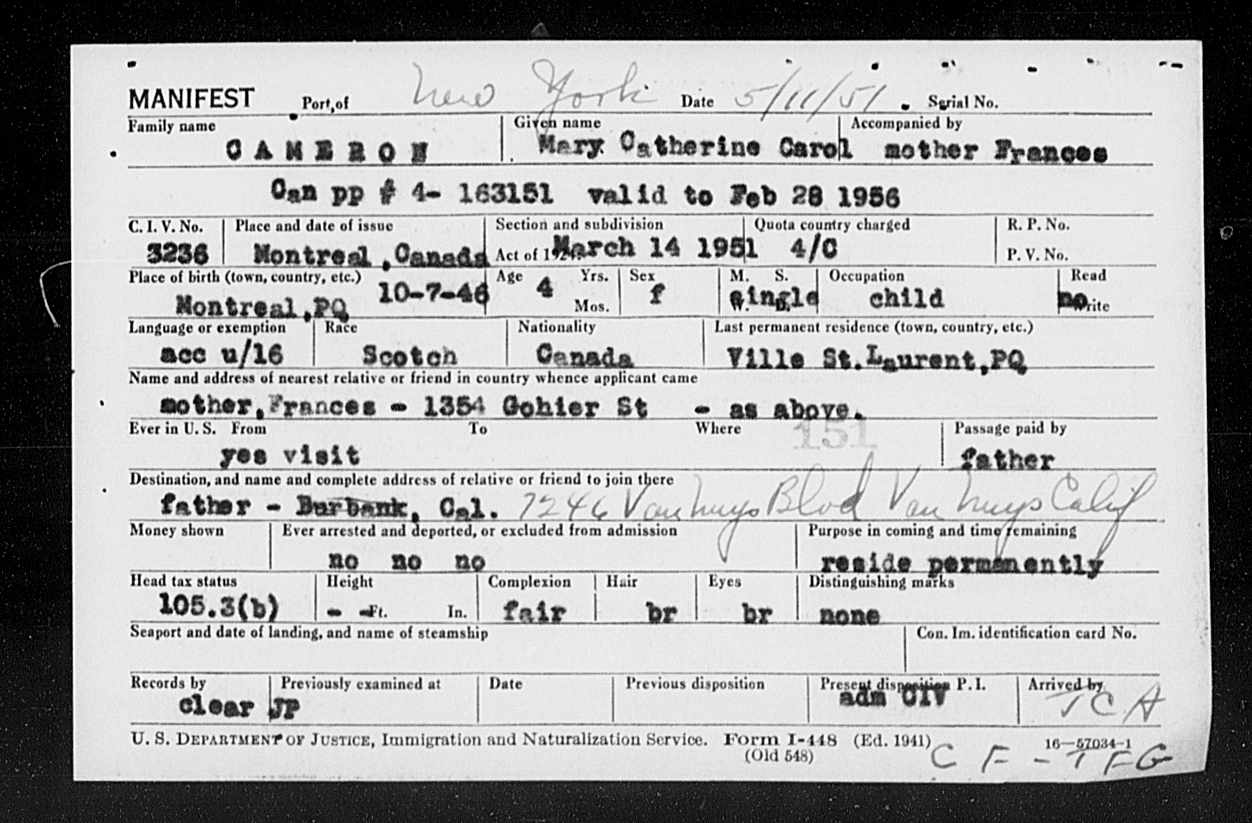 MANIFEST Port of New York Date 5/11/51. Serial No.
Family name Given name Accompanied by
CAMERON Mary Catherine Carol mother Frances
Can pp # 4- 163151 valid to Feb 28 1956
C. I. V. No. Place and date of issue Section and subdivision Quota country charged R. P. No.
3236 Montreal, Canada Act of 1924 March 14 1951 4/C P. V. No.
Place of birth (town, country, etc.) Age Yrs. Sex M. S. Occupation Read
Montreal, PQ 10-7-46 4 Mos. f single W. D. child no Write
Language or exemption Race Nationality Last permanent residence (town, country, etc.)
acc u/16 Scotch Canada Ville St. Laurent, PQ
Name and address of nearest relative or friend in country whence applicant came
mother, Frances - 1354 Gohier St - as above.
Ever in U. S. From To Where 151 Passage paid by
yes visit father
Destination, and name and complete address of relative or friend to join there
father - Burbank, Cal. 7246 Van Nuys Blvd Van Nuys Calif
Money shown Ever arrested and deported, or excluded from admission Purpose in coming and time remaining
no no no reside permanently
Head tax status Height Complexion Hair Eyes Distinguishing marks
105.3(b) - - Ft. In. fair br br none
Seaport and date of landing, and name of steamship Con. Im. identification card No.
Records by Previously examined at Date Previous disposition Present disposition P. I. Arrived by
clear JP adm CIV TCA
U. S. DEPARTMENT OF JUSTICE, Immigration and Naturalization Service. Form I-448 (Ed. 1941) 16—57034-1
(Old 548) CF-TFG